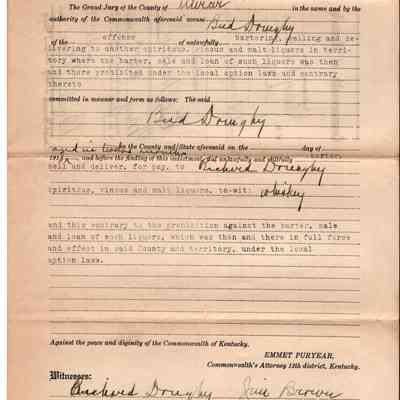 The Grand Jury of the County of Mercer in the name and by the
authority of the Commonwealth aforesaid accuse Bud Doughy
of the offense of unlawfully bartering, selling and de-
livering to another spiritous, vinous and malt liquors in terri-
tory where the barter, sale and loan of such liquors was then
and there prohibited under the local option laws and contrary
thereto
committed in manner and form as follows: The said
Bud Doughy
in the County and State aforesaid on the day of
191 and before the finding of this indictment, did unlawfully and willfully barter,
sell and deliver, for pay, to Richard Doughy
spiritous, vinous and malt liquors, to-wit: whiskey
and this contrary to the prohibition against the barter, sale
and loan of such liquors, which was then and there in full force
and effect in said County and territory, under the local
option law.
Against the peace and dignity of the Commonwealth of Kentucky.
EMMET PURYEAR,
Commonwealth's Attorney 13th district, Kentucky.
Witnesses:
Richard Doughy Brown